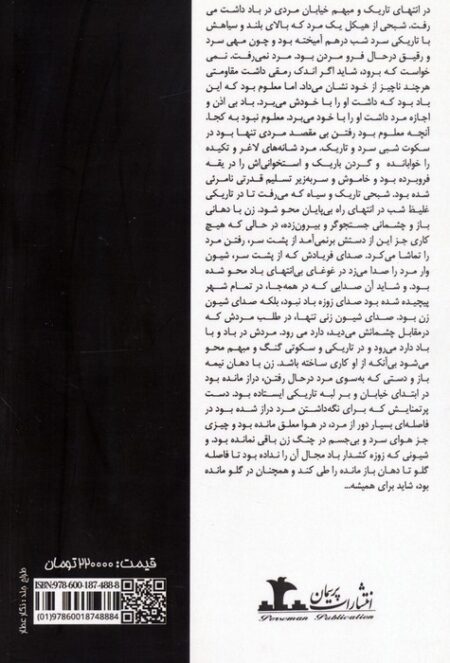 در انتهای تاریک و مبهم خیابان مردی در باد داشت می
رفت. شبحی از هیکل یک مرد که بالای بلند و سیاهش
با تاریکی سرد شب درهم آمیخته بود و چون مهی سرد
و رقیق درحال فرو مردن بود. مرد نمی‌رفت. نمی
خواست که برود، شاید اگر اندک رمقی داشت مقاومتی
هرچند ناچیز از خود نشان می‌داد. اما معلوم بود که این
باد بود که داشت او را با خودش می‌برد. باد بی اذن و
اجازه مرد داشت او را با خود می‌برد. معلوم نبود به کجا.
آنچه معلوم بود رفتن بی مقصد مردی تنها بود در
سکوت شبی سرد و تاریک. مرد شانه‌های لاغر و تکیده
را خوابانده و گردن باریک و استخوانی‌اش را در یقه
فروبرده بود و خاموش و سربه‌زیر تسلیم قدرتی نامرئی
شده بود. شبحی تاریک و سیاه که می‌رفت تا در تاریکی
غلیظ شب در انتهای راه بی‌پایان محو شود. زن با دهانی
باز و چشمانی جستجوگر و بیرون‌زده، در حالی که هیچ
کاری جز این از دستش برنمی‌آمد از پشت سر، رفتن مرد
را تماشا می‌کرد. صدای فریادش که از پشت سر، شیون
وار مرد را صدا می‌زد در غوغای بی‌انتهای باد محو شده
بود. و شاید آن صدایی که در همه‌جا، در تمام شهر
پیچیده شده بود صدای زوزه باد نبود، بلکه صدای شیون
زن بود. صدای شیون زنی تنها، در طلب مردش که
درمقابل چشمانش می‌دید، دارد می رود. مردش در باد و با
باد دارد می‌رود و در تاریکی و سکوتی گنگ و مبهم محو
می‌شود بی‌آنکه از او کاری ساخته باشد. زن با دهان نیمه
باز و دستی که به‌سوی مرد درحال رفتن، دراز مانده بود
در ابتدای خیابان و بر لبه تاریکی ایستاده بود. دست
پرتمنایش که برای نگه‌داشتن مرد دراز شده بود در
فاصله‌ای بسیار دور از مرد، در هوا معلق مانده بود و چیزی
جز هوای سرد و بی‌جسم در چنگ زن باقی نمانده بود. و
شیونی که زوزه کشدار باد مجال آن را نداده بود تا فاصله
گلو تا دهان باز مانده را طی کند و همچنان در گلو مانده
بود، شاید برای همیشه...
انتشارات پریمان
Perseman Publication
قیمت: ۲۲۰۰۰۰ تومان
ISBN:978-600-187-488-8
(01)97860018748884
طراح جلد: نگار عطار